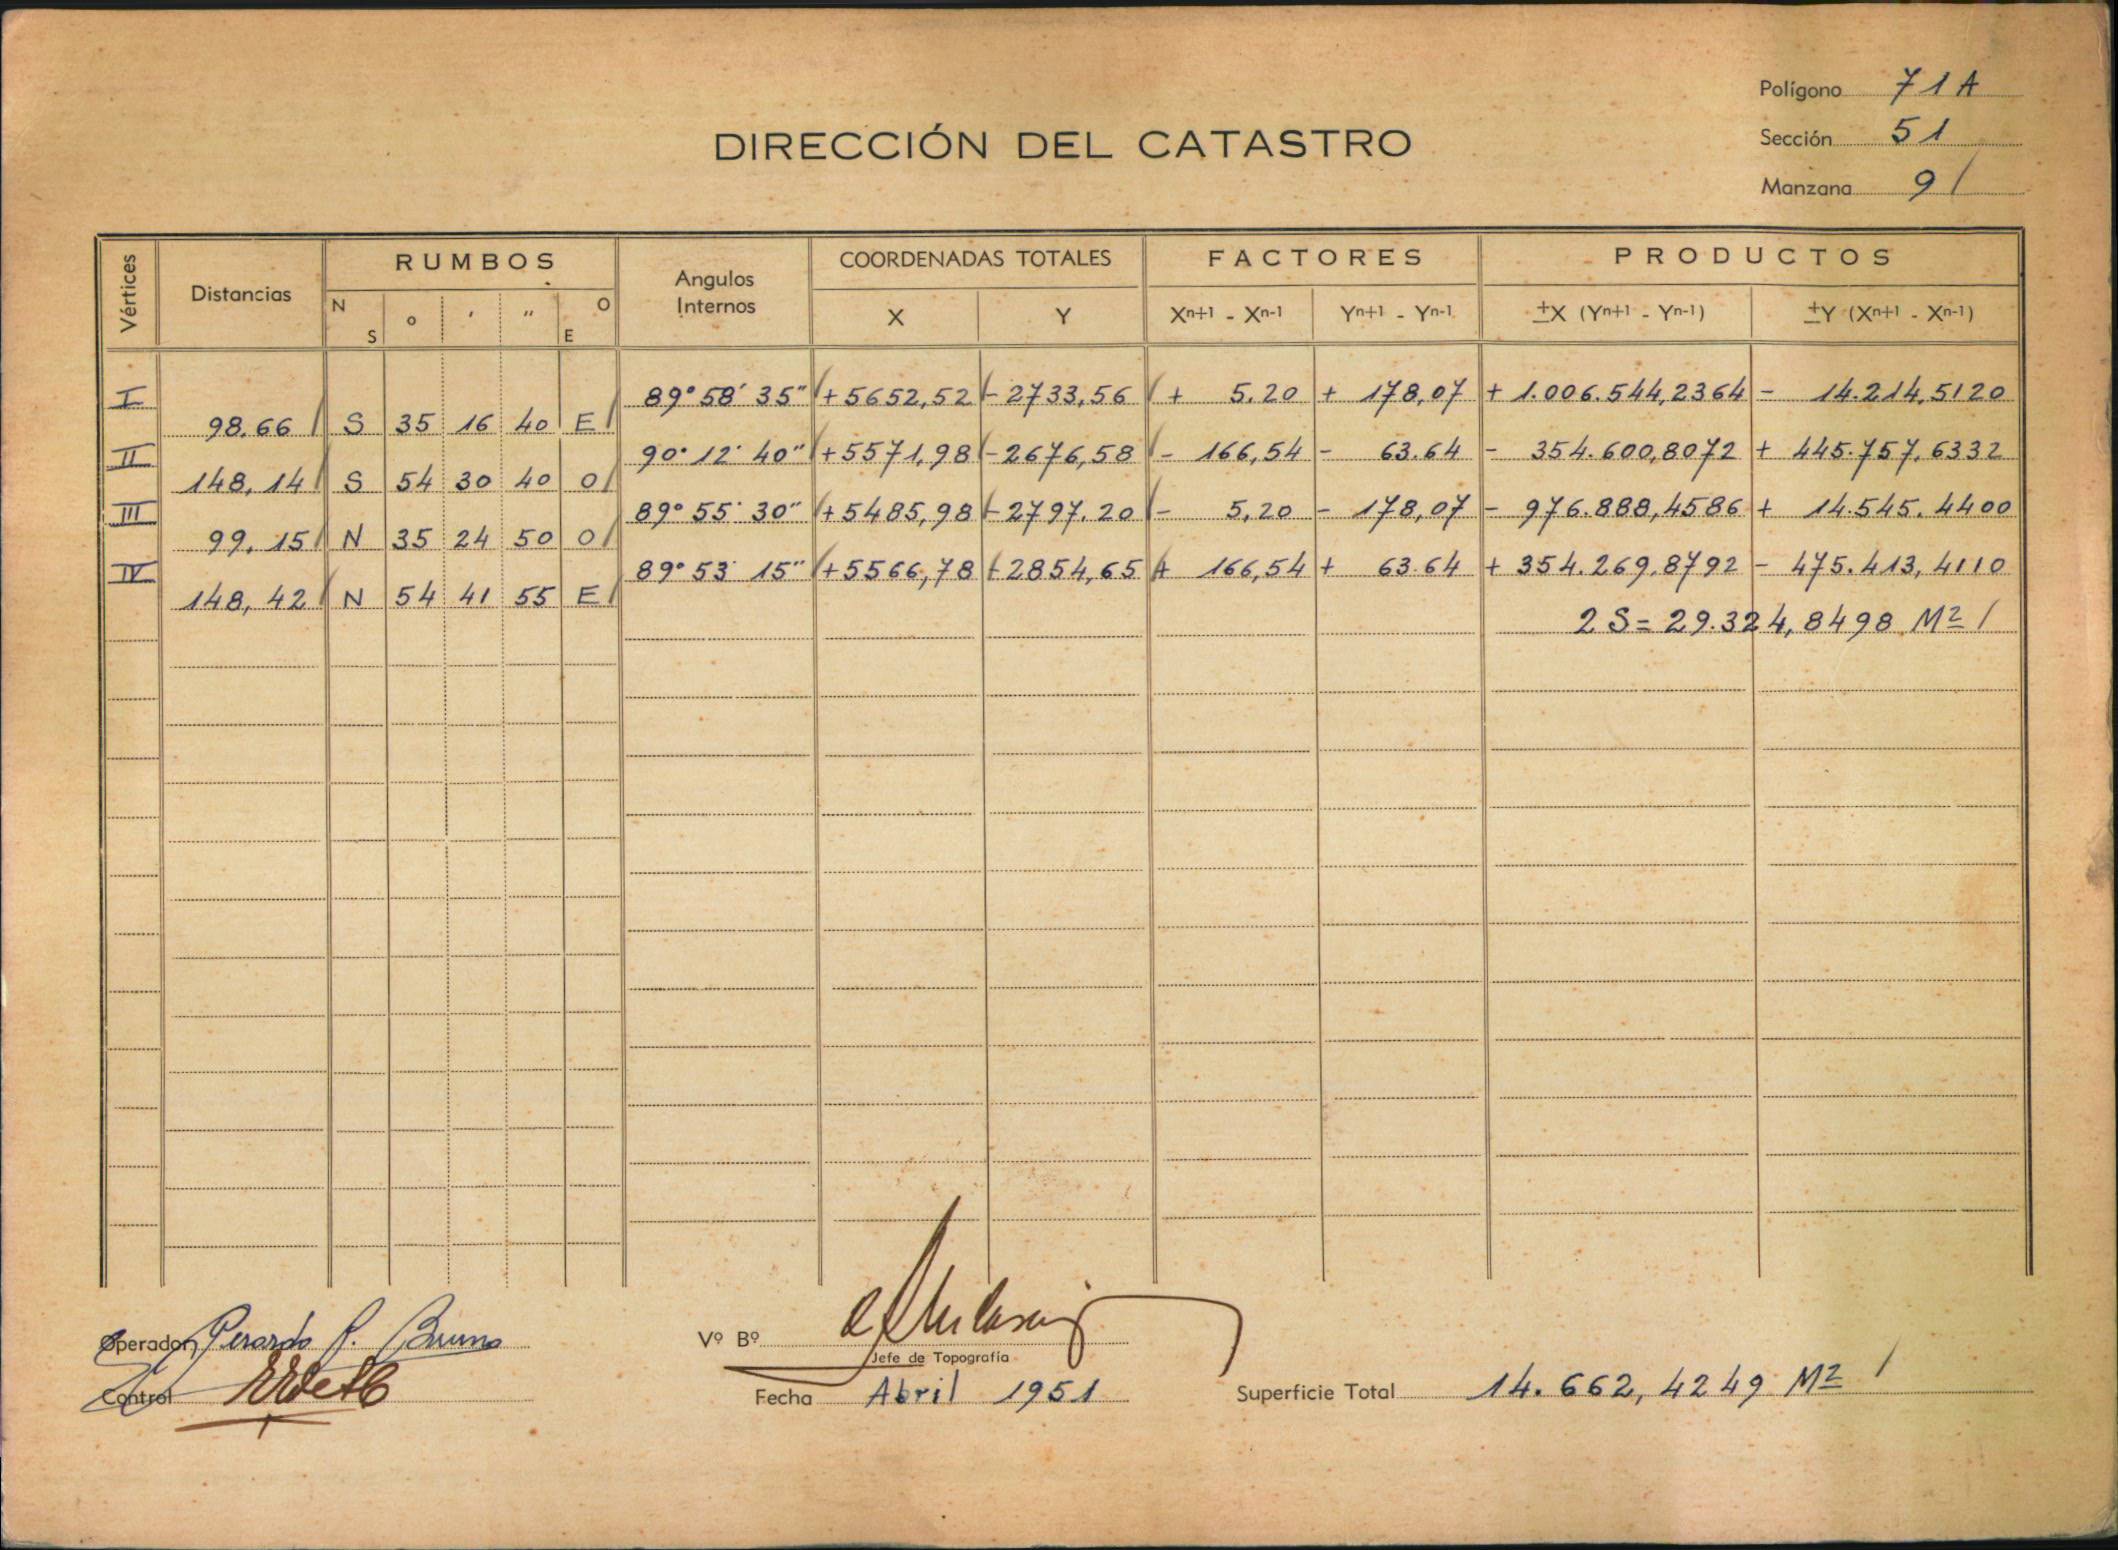 Polígono 71A
DIRECCIÓN DEL CATASTRO
Sección 51
Manzana 9
Vértices Distancias RUMBOS Angulos Internos COORDENADAS TOTALES FACTORES PRODUCTOS
N S o ' " O E X Y Xn+1 - Xn-1 Yn+1 - Yn-1 ±X (Yn+1 - Yn-1) ±Y (Xn+1 - Xn-1)
I 89° 58' 35" +5652,52 -2733,56 + 5.20 + 178,07 + 1.006.544,2364 - 14.214,5120
98.66 S 35 16 40 E
II 90° 12' 40" +5571,98 -2676,58 - 166,54 - 63.64 - 354.600,8072 + 445.757,6332
148,14 S 54 30 40 O
III 89° 55' 30" +5485,98 -2797.20 - 5,20 - 178,07 - 976.888,4586 + 14.545.4400
99,15 N 35 24 50 O
IV 89° 53' 15" +5566,78 -2854,65 + 166,54 + 63.64 + 354.269,8792 - 475.413,4110
148,42 N 54 41 55 E
2 S = 29.324,8498 M2
Operador Gerardo R. Bruno
Vº Bº
Jefe de Topografía
Control
Fecha Abril 1951
Superficie Total 14.662,4249 M2